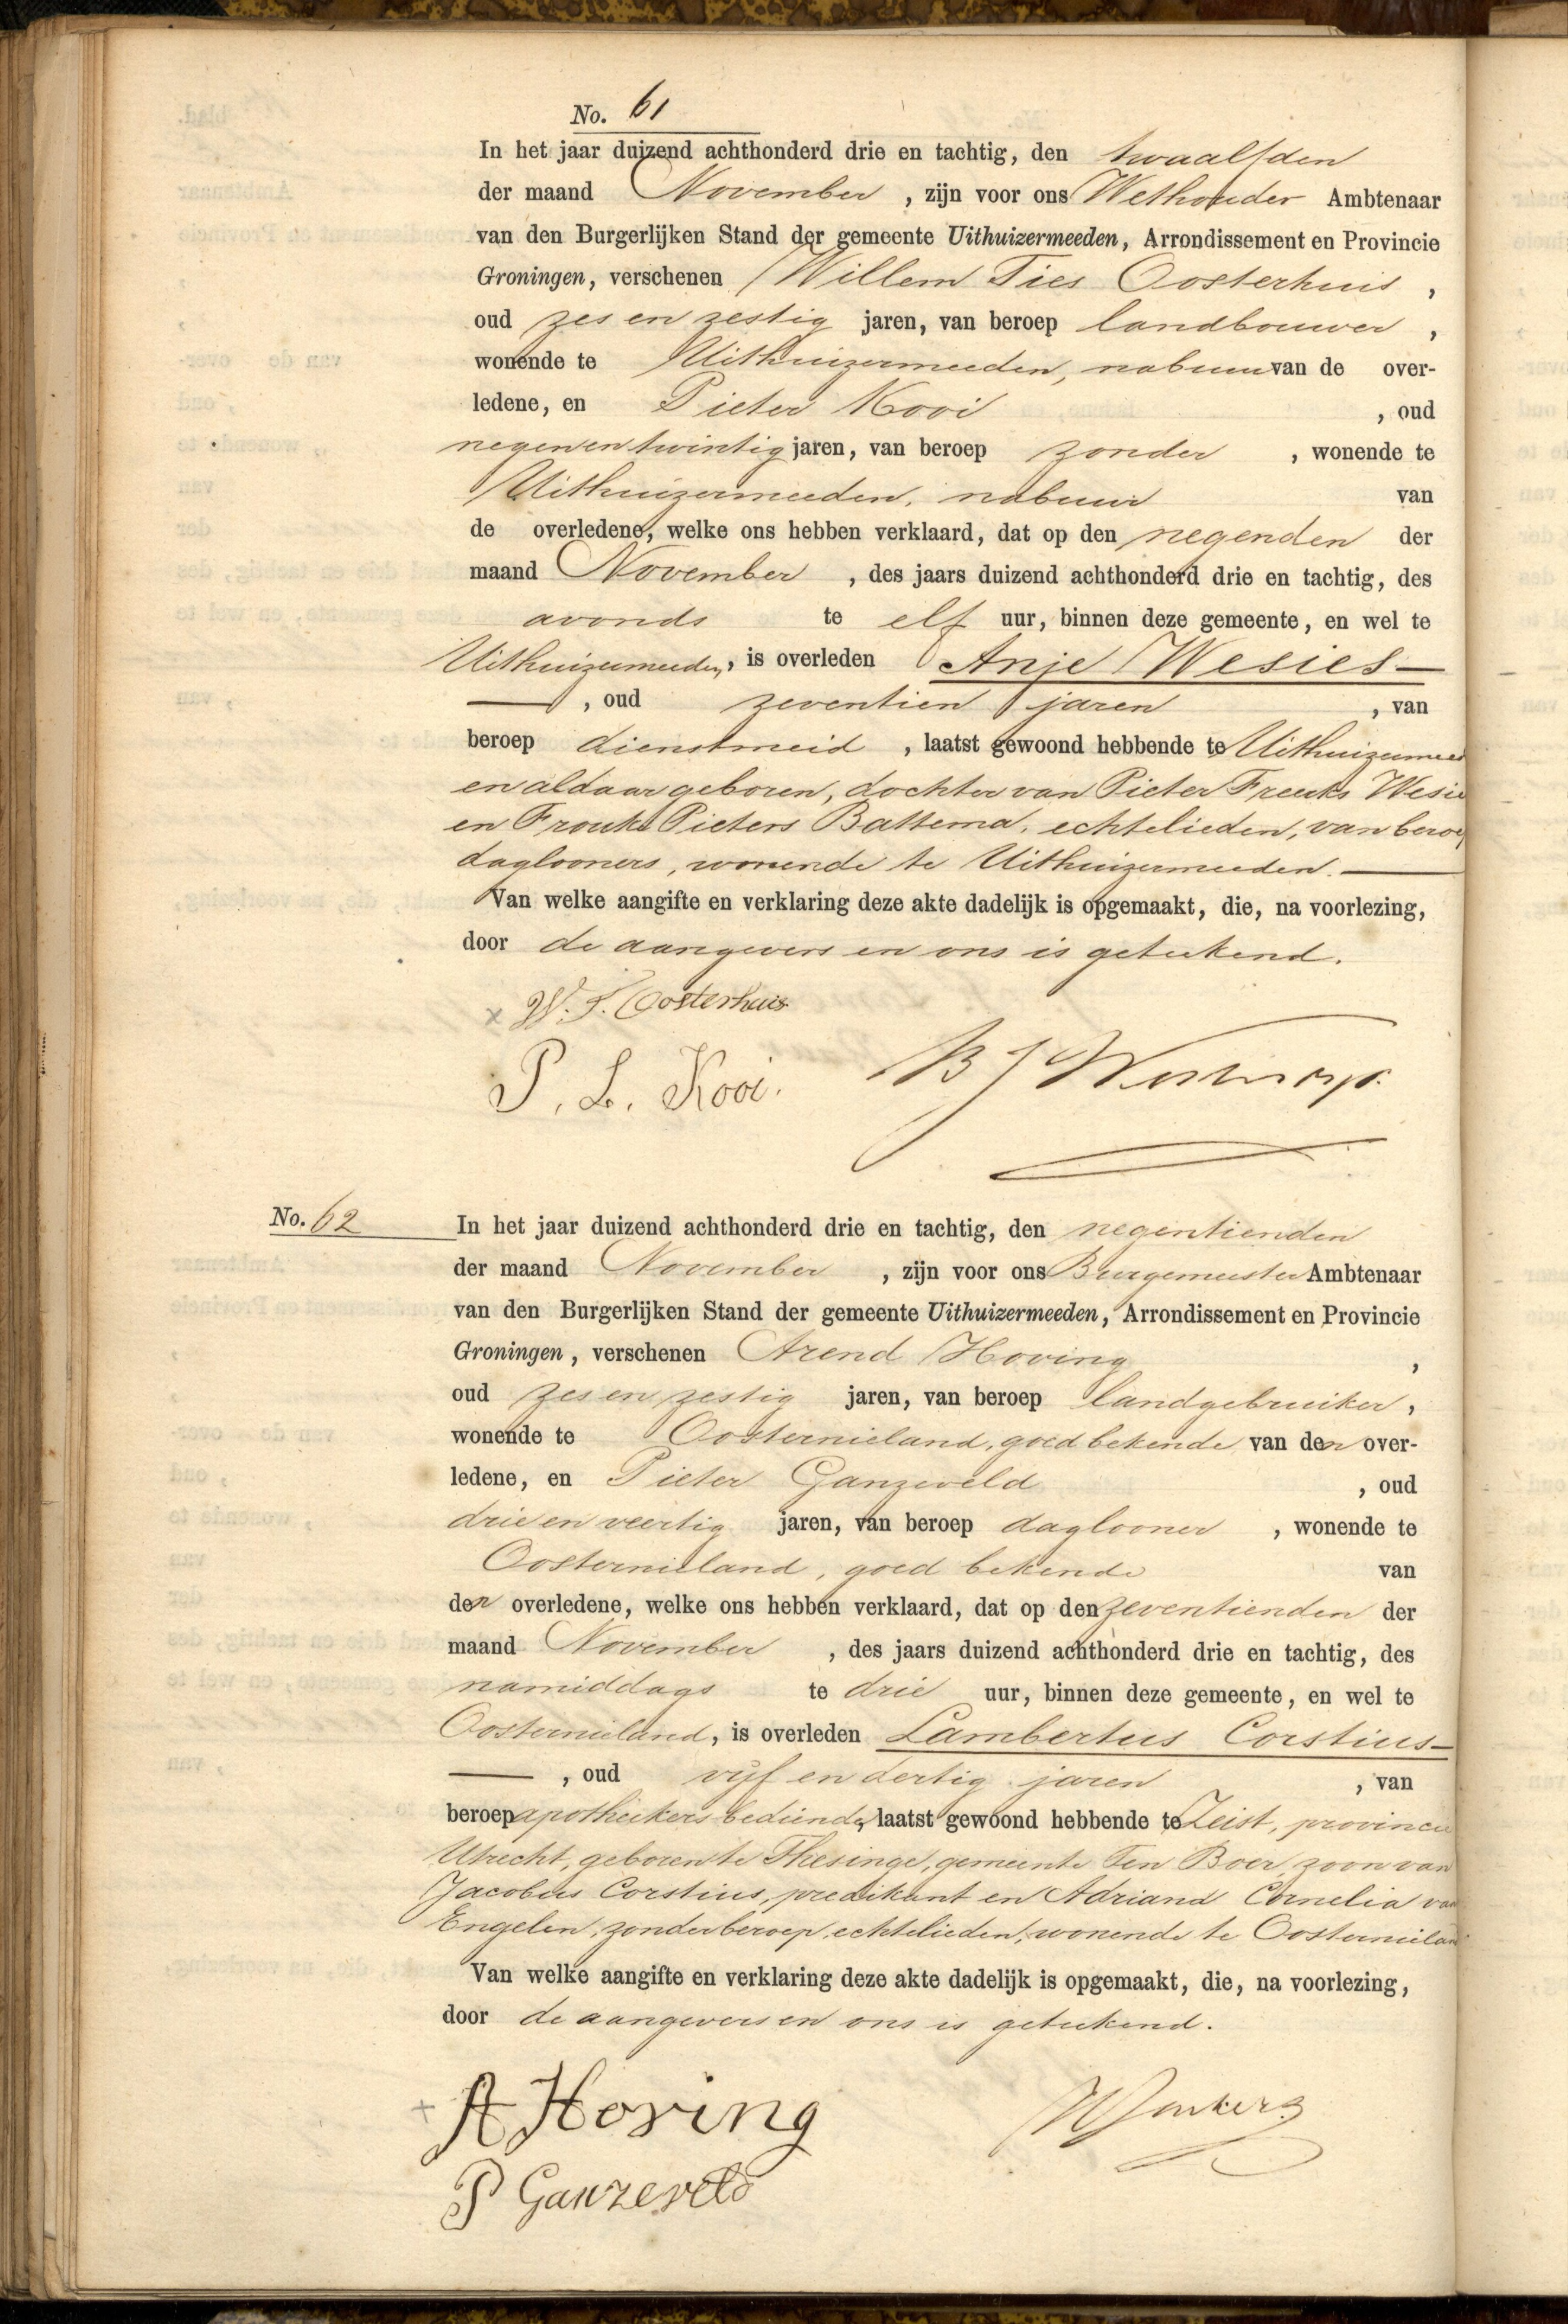 No. 61
In het jaar duizend achthonderd drie en tachtig, den twaalfden
der maand November , zijn voor ons Wethouder Ambtenaar
van den Burgerlijken Stand der gemeente Uithuizermeeden, Arrondissement en Provincie
Groningen, verschenen Willem Ties Oosterhuis ,
oud zes en zestig jaren, van beroep landbouwer ,
wonende te Uithuizermeeden, nabuur van de over-
ledene, en Pieter Kooi , oud
negen en twintig jaren, van beroep zonder , wonende te
Uithuizermeeden, nabuur van
de overledene, welke ons hebben verklaard, dat op den negenden der
maand November , des jaars duizend achthonderd drie en tachtig, des
avonds te elf uur, binnen deze gemeente, en wel te
Uithuizermeeden, is overleden Anje Wesies
, oud zeventien jaren , van
beroep dienstmeid , laatst gewoond hebbende te Uithuizermeed
en aldaar geboren, dochter van Pieter Freerks Wesie
en Frouke Pieters Battema, echtelieden, van beroep
daglooners, wonende te Uithuizermeeden.
Van welke aangifte en verklaring deze akte dadelijk is opgemaakt, die, na voorlezing,
door de aangevers en ons is geteekend.
x W. T. Oosterhuis
P. L. Kooi.
No. 62
In het jaar duizend achthonderd drie en tachtig, den negentienden
der maand November , zijn voor ons Burgemeester Ambtenaar
van den Burgerlijken Stand der gemeente Uithuizermeeden, Arrondissement en Provincie
Groningen, verschenen Arend Hoving ,
oud zes en zestig jaren, van beroep landgebruiker,
wonende te Oosternieland, goed bekende van den over-
ledene, en Pieter Ganzeveld , oud
drie en veertig jaren, van beroep daglooner , wonende te
Oosternieland, goed bekende van
den overledene, welke ons hebben verklaard, dat op den zeventienden der
maand November , des jaars duizend achthonderd drie en tachtig, des
namiddags te drie uur, binnen deze gemeente, en wel te
Oosternieland, is overleden Lambertus Corstius
, oud vijf en dertig jaren , van
beroep apothekersbediende, laatst gewoond hebbende te Zeist, provincie
Utrecht, geboren te Thesinge, gemeente Ten Boer, zoon van
Jacobus Corstius, predikant en Adriana Cornelia van
Engelen, zonder beroep, echtelieden, wonende te Oosternieland
Van welke aangifte en verklaring deze akte dadelijk is opgemaakt, die, na voorlezing,
door de aangevers en ons is geteekend.
+ A Hoving
P Ganzeveld